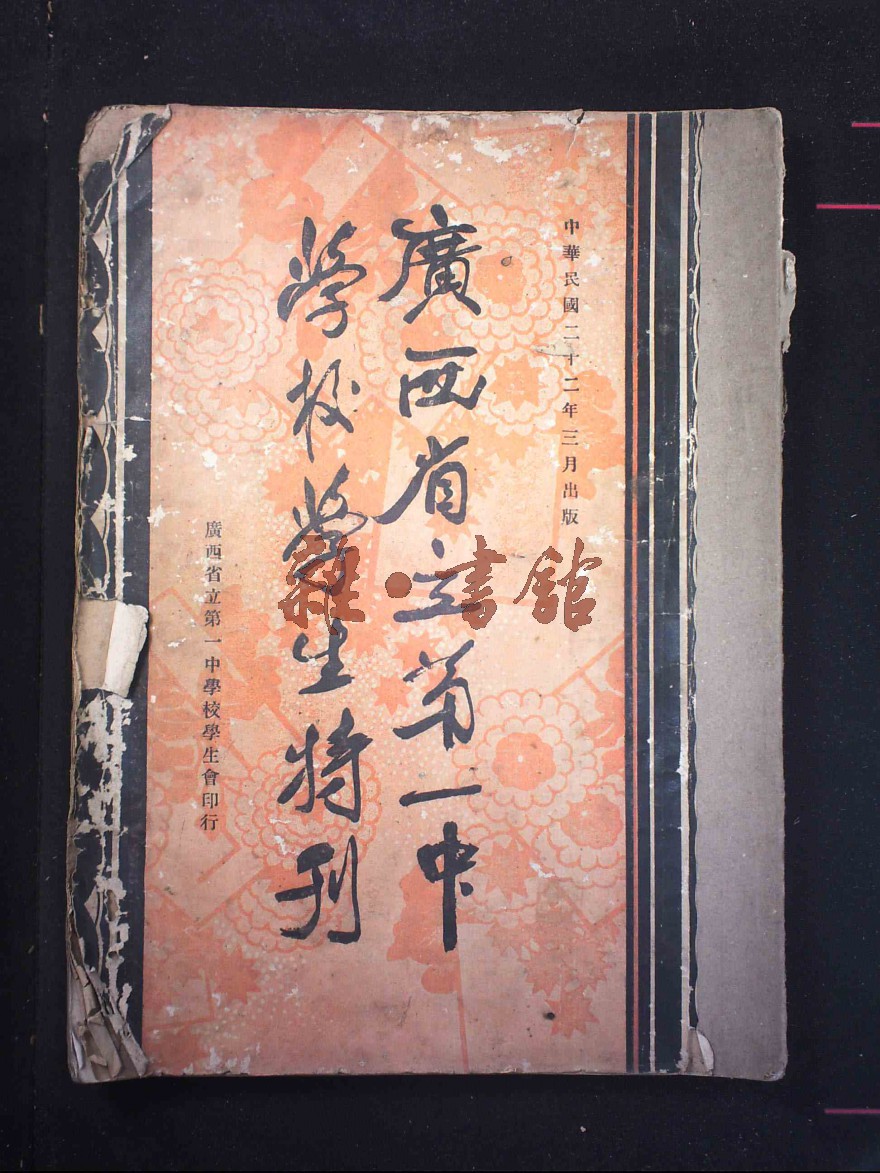 中華民國二十二年三月出版
廣西省立第一中
學校學生特刊
廣西省立第一中學校學生會印行
雜·書館